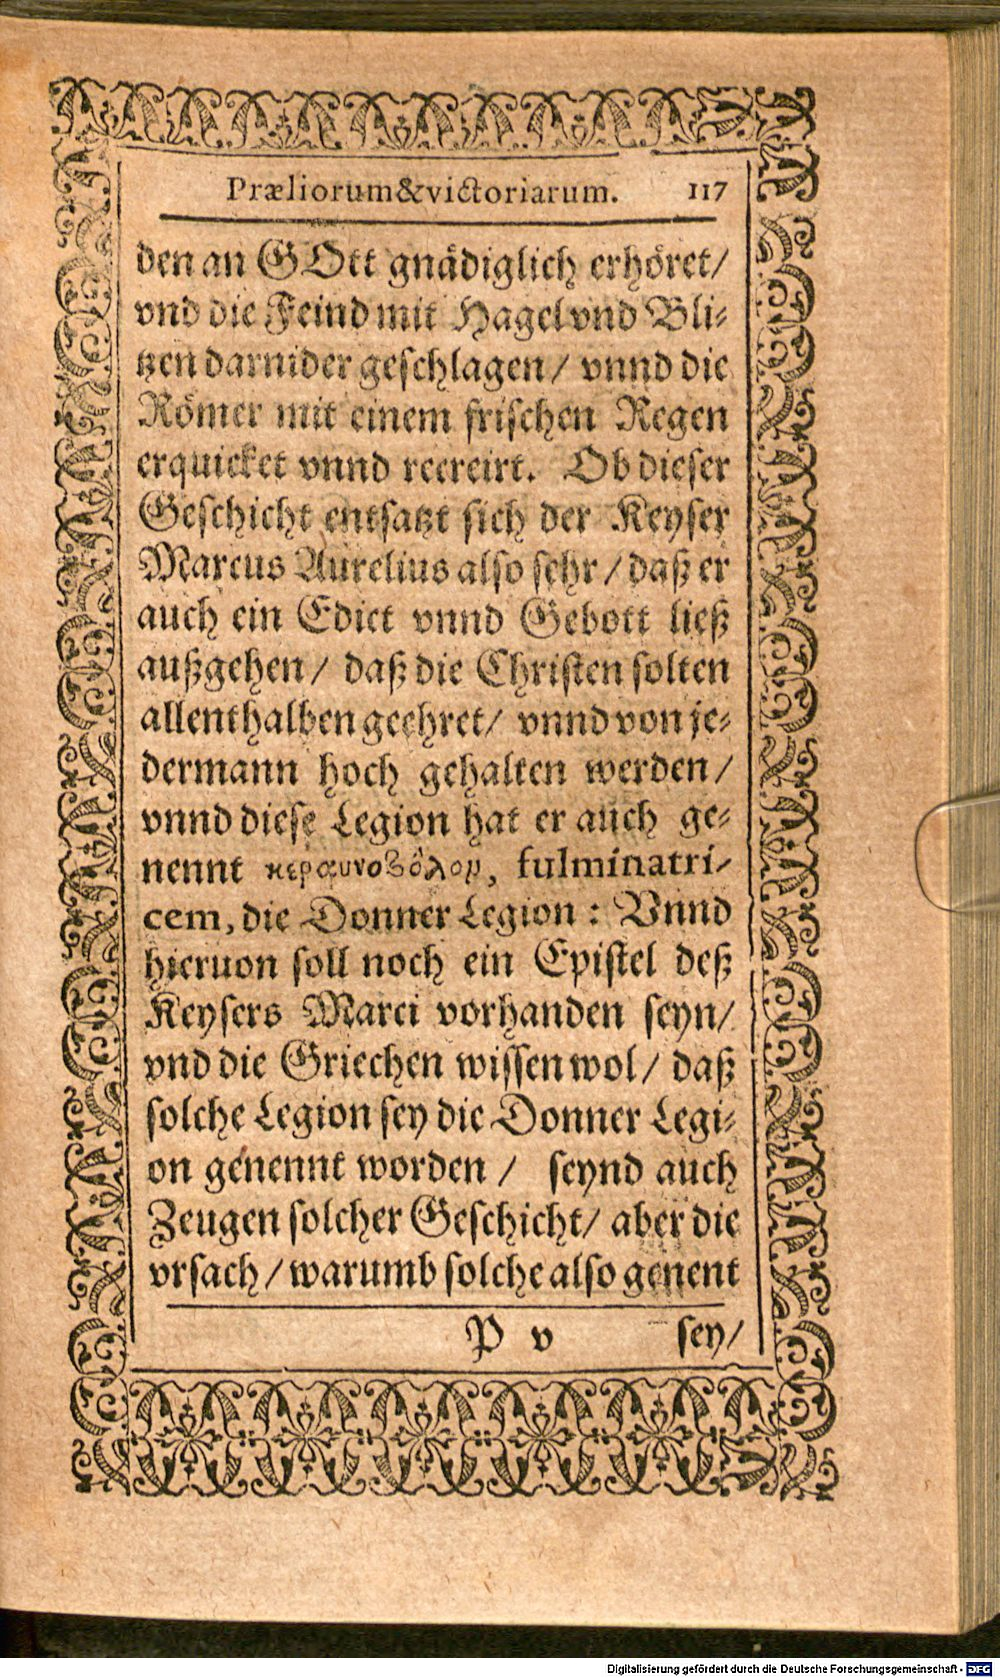 Præliorum&victoriarum. 117
den an GOtt gnädiglich erhöret/
vnd die Feind mit Hagel vnd Bli-
tzen darnider geschlagen/ vnnd die
Römer mit einem frischen Regen
erquicket vnnd recreirt. Ob dieser
Geschicht entsatzt sich der Keyser
Marcus Aurelius also sehr/ daß er
auch ein Edict vnnd Gebott ließ
außgehen/ daß die Christen solten
allenthalben geehret/ vnnd von je-
dermann hoch gehalten werden/
vnnd diese Legion hat er auch ge-
nennt κεραυνοβόλον, fulminatri-
cem, die Donner Legion: Vnnd
hieruon soll noch ein Epistel deß
Keysers Marci vorhanden seyn/
vnd die Griechen wissen wol/ daß
solche Legion sey die Donner Legi-
on genennt worden/ seynd auch
Zeugen solcher Geschicht/ aber die
vrsach/ warumb solche also genent
P v sey/
Digitalisierung gefördert durch die Deutsche Forschungsgemeinschaft - DFG